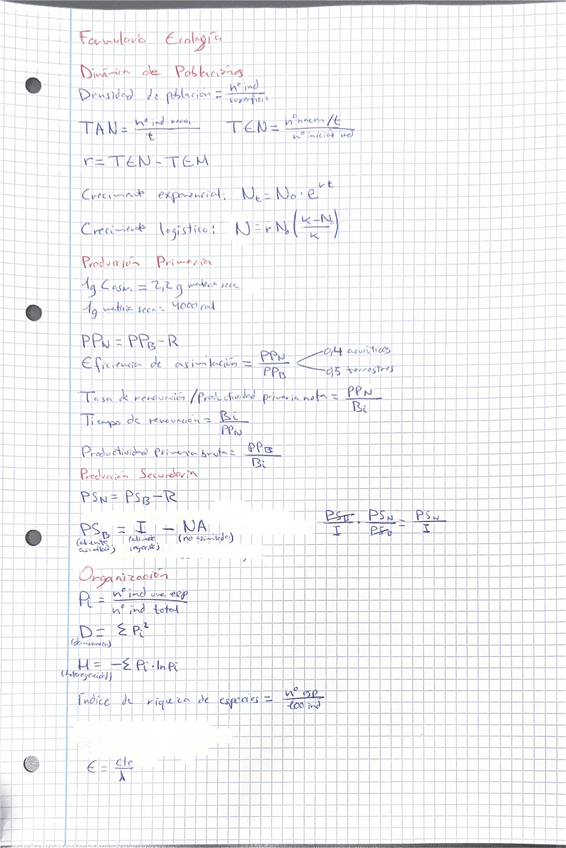 Formulario Ecología
Dinámica de Poblaciones
Densidad de población = nº ind / superficie
TAN = nº ind nacen / t   TEN = nº nacen/t / nº inicial ind
r = TEN - TEM
Crecimiento exponencial: Nt = N₀ · e^rt
Crecimiento logístico: N = r N₀ (K-N₀ / K)
Producción Primaria
1g C asm. = 2,2 g materia seca
1g materia seca = 4000 cal
PPN = PPB - R
Eficiencia de asimilación = PPN / PPB < 0,4 acuáticos
0,5 terrestres
Tasa de renovación / Productividad primaria neta = PPN / Bi
Tiempo de renovación = Bi / PPN
Productividad Primaria bruta = PPB / Bi
Producción Secundaria
PSN = PSB - R
PSB = I - NA   PSB / I · PSN / PSB = PSN / I
(alimento asimilado) (alimento ingerido) (no asimilado)
Organización
Pi = nº ind una esp / nº ind total
D = Σ Pi²
(dominancia)
H = -Σ Pi · ln Pi
Índice de riqueza de especies = nº esp / 100 ind
E = cte / λ